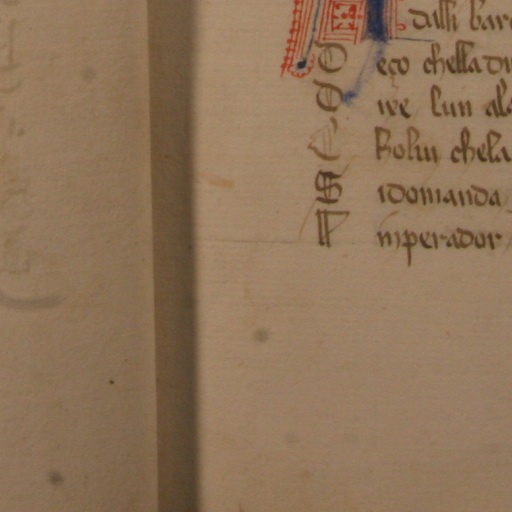 dalli bar
D eço chella du
D ire lun al
C Bolin chela
S idomanda
I mperador